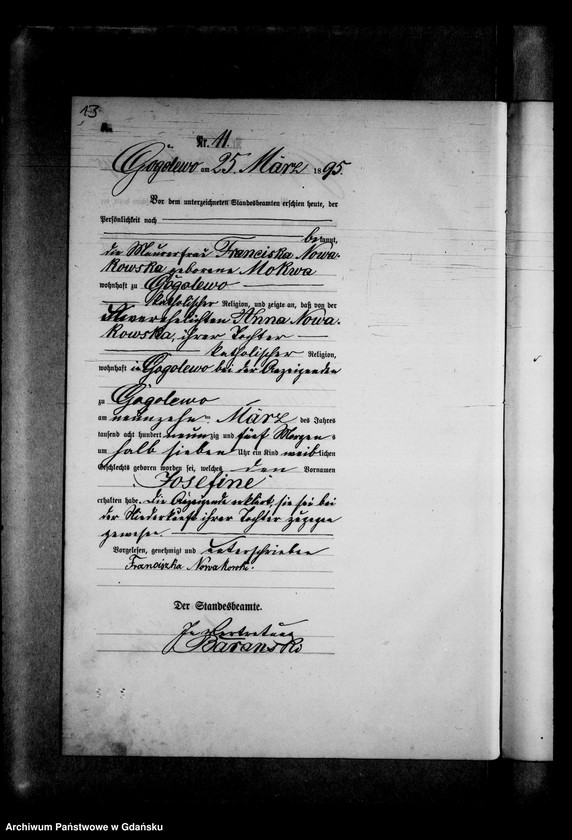 13
Nr. 11.
Gogolewo am 25 März 1895.
Vor dem unterzeichneten Standesbeamten erschien heute, der
Persönlichkeit nach
bekannt,
die Maurerfrau Franciska Nowa-
kowska geborene Mokwa
wohnhaft zu Gogolewo
katholischer Religion, und zeigte an, daß von der
unverehelichten Anna Nowa-
kowska, ihrer Tochter
katholischer Religion,
wohnhaft in Gogolewo bei der Anzeigenden
zu Gogolewo
am neunzehn ten März des Jahres
tausend acht hundert neunzig und fünf Morgens
um halb sieben Uhr ein Kind weiblichen
Geschlechts geboren worden sei, welches den Vornamen
Josefine
erhalten habe. Die Anzeigende erklärt, sie sei bei
der Niederkunft ihrer Tochter zugegen
gewesen.
Vorgelesen, genehmigt und unterschrieben
Franciszka Nowakowski.
Der Standesbeamte.
In Vertretung
Baranski
Archiwum Państwowe w Gdańsku